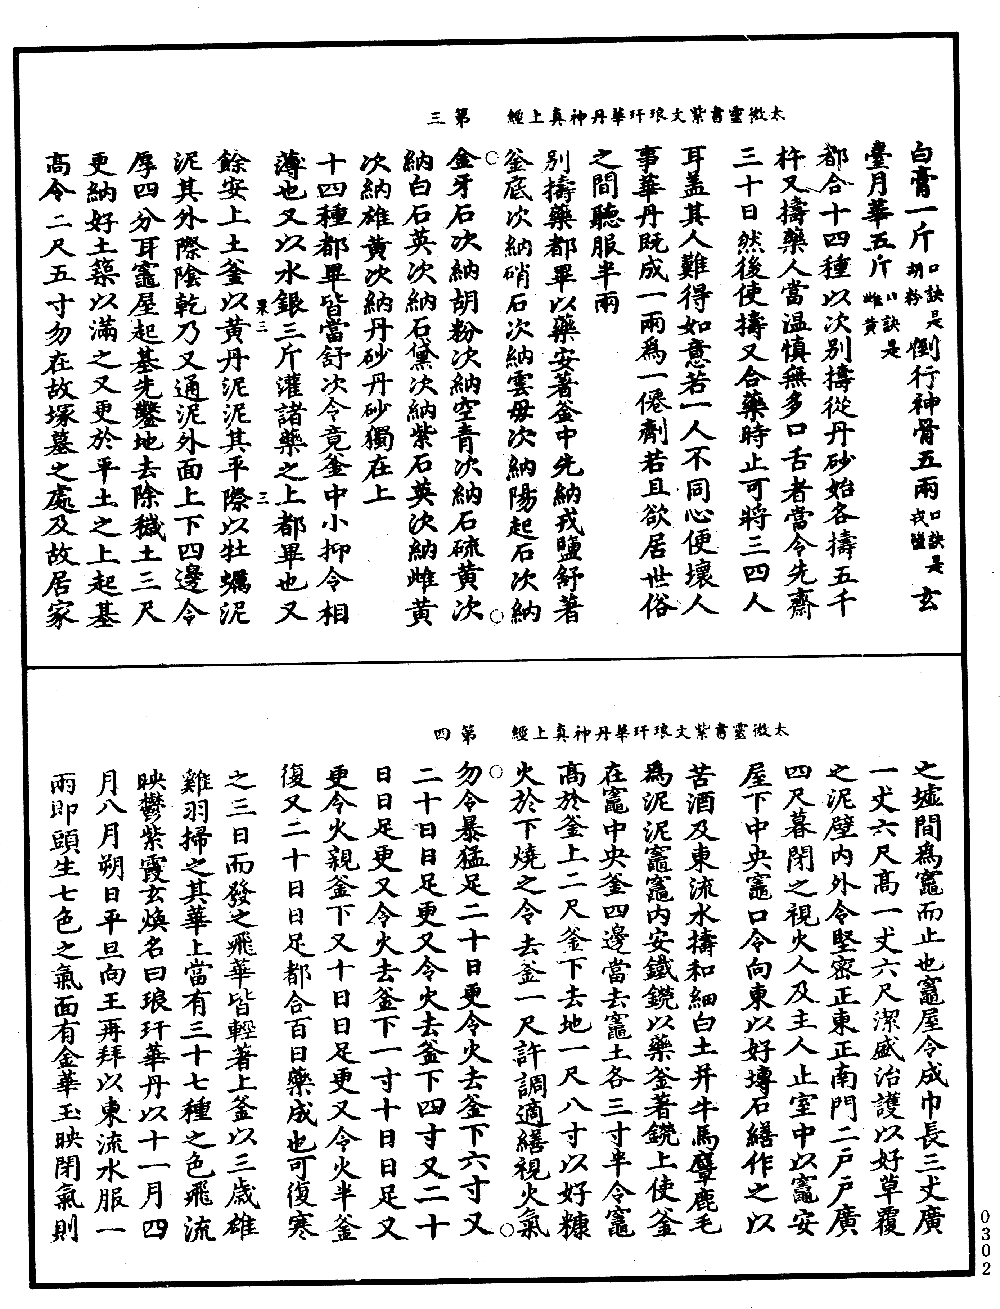 太微靈書紫文琅玕華丹神真上經　第三
白膏一斤口訣是胡粉倒行神骨五兩口訣是戎鹽玄
臺月華五斤口訣是雌黃
都合十四種以次別擣從丹砂始各擣五千
杵又擣藥人當温慎無多口舌者當令先齋
三十日然後使擣又合藥時止可將三四人
耳蓋其人難得如意若一人不同心便壞人
事華丹既成一兩爲一僊劑若且欲居世俗
之間聽服半兩
別擣藥都畢以藥安著釜中先納戎鹽舒著
釜底次納硝石次納雲母次納陽起石次納
金牙石次納胡粉次納空青次納石硫黃次
納白石英次納石黛次納紫石英次納雌黃
次納雄黃次納丹砂丹砂獨在上
十四種都畢皆當舒次令竟釜中小抑令相
薄也又以水銀三斤灌諸藥之上都畢也又
餘安上土釜以黃丹泥泥其平際以牡蠣泥
泥其外際陰乾乃又通泥外面上下四邊令
厚四分耳竈屋起基先鑿地去除穢土三尺
更納好土築以滿之又更於平土之上起基
高令二尺五寸勿在故塚墓之處及故居家
太微靈書紫文琅玕華丹神真上經　第四
之墟間爲竈而止也竈屋令成巾長三丈廣
一丈六尺高一丈六尺潔盛治護以好草覆
之泥壁内外令堅密正東正南門二戸戸廣
四尺暮閉之視火人及主人止室中以竈安
屋下中央竈口令向東以好塼石繕作之以
苦酒及東流水擣和細白土并牛馬麞鹿毛
爲泥泥竈竈内安鐵鐃以藥釜著鐃上使釜
在竈中央釜四邊當去竈土各三寸半令竈
高於釜上二尺釜下去地一尺八寸以好糠
火於下燒之令去釜一尺許調適繕視火氣
勿令暴猛足二十日更令火去釜下六寸又
二十日日足更又令火去釜下四寸又二十
日日足更又令火去釜下一寸十日日足又
更令火親釜下又十日日足更又令火半釜
復又二十日日足都合百日藥成也可復寒
之三日而發之飛華皆輕著上釜以三歲雄
雞羽掃之其華上當有三十七種之色飛流
映鬱紫霞玄煥名曰琅玕華丹以十一月四
月八月朔日平旦向王再拜以東流水服一
兩即頭生七色之氣面有金華玉映閉氣則
卷三　三
0302